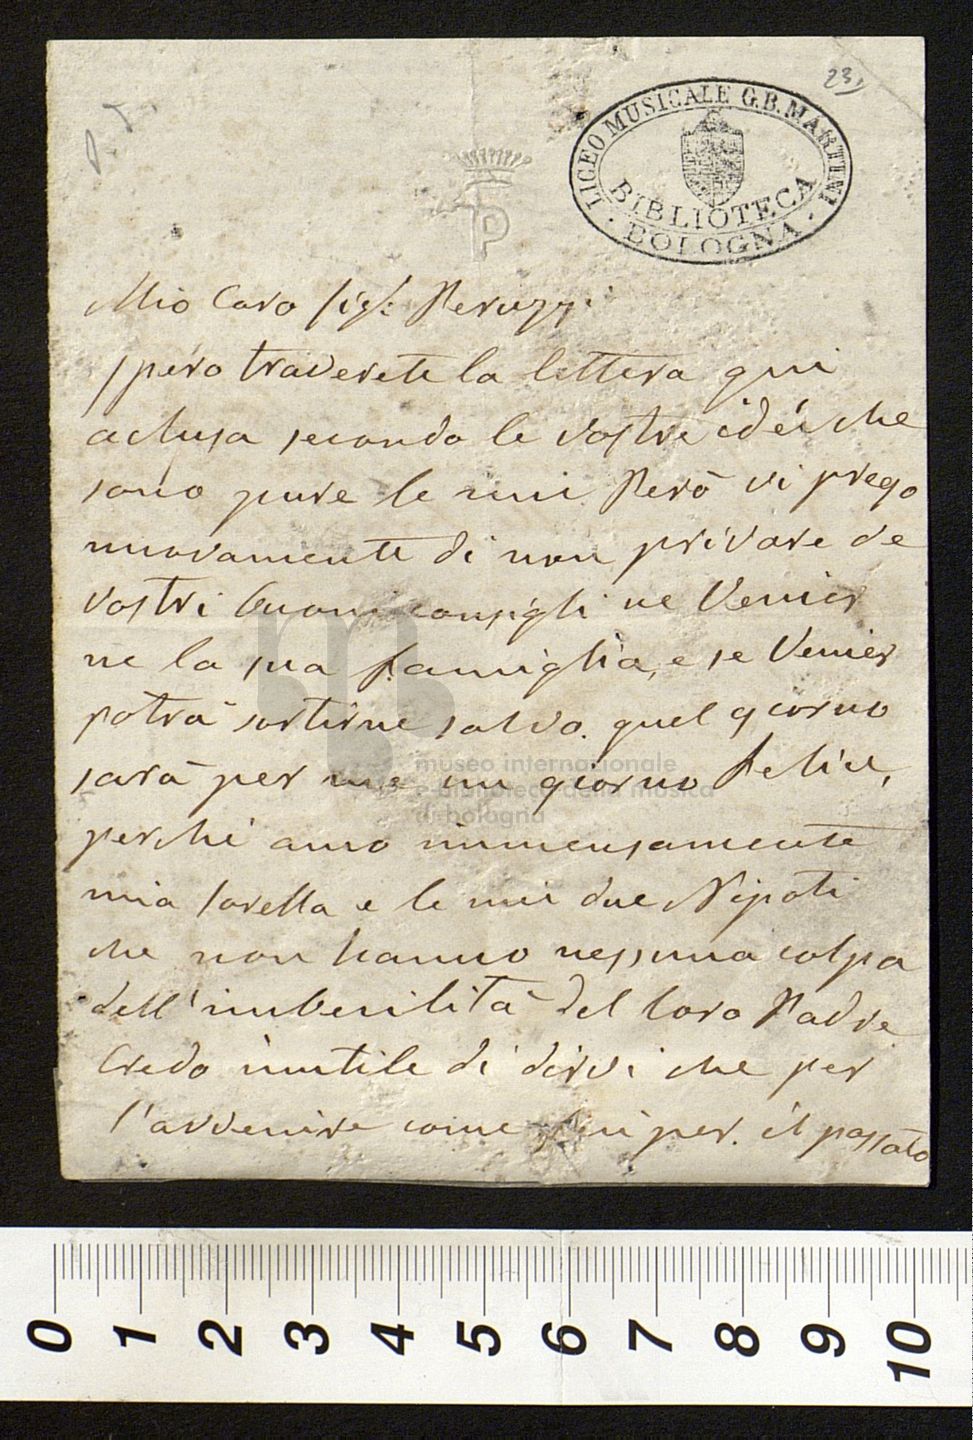 23)
LICEO MUSICALE G.B. MARTINI
BIBLIOTECA
BOLOGNA
FP
Mio Caro Sigr: Peruzzi
Spero troverete la lettera qui
aclusa secondo le vostre idei che
sono pure le mie. Però vi prego
nuovamente di non privare de
vostri buoni consigli ne Venier
ne la sua famiglia, e se Venier
potrà sortirne salvo. quel giorno
sarà per me un giorno felice,
perchè amo immensamente
mia sorella e le mie due Nipoti
che non hanno nessuna colpa
dell'imbecilità del loro Padre
Credo inutile di dirvi che per
l'avvenire come per il passato
museo internazionale
e biblioteca della musica
di bologna
0 1 2 3 4 5 6 7 8 9 10